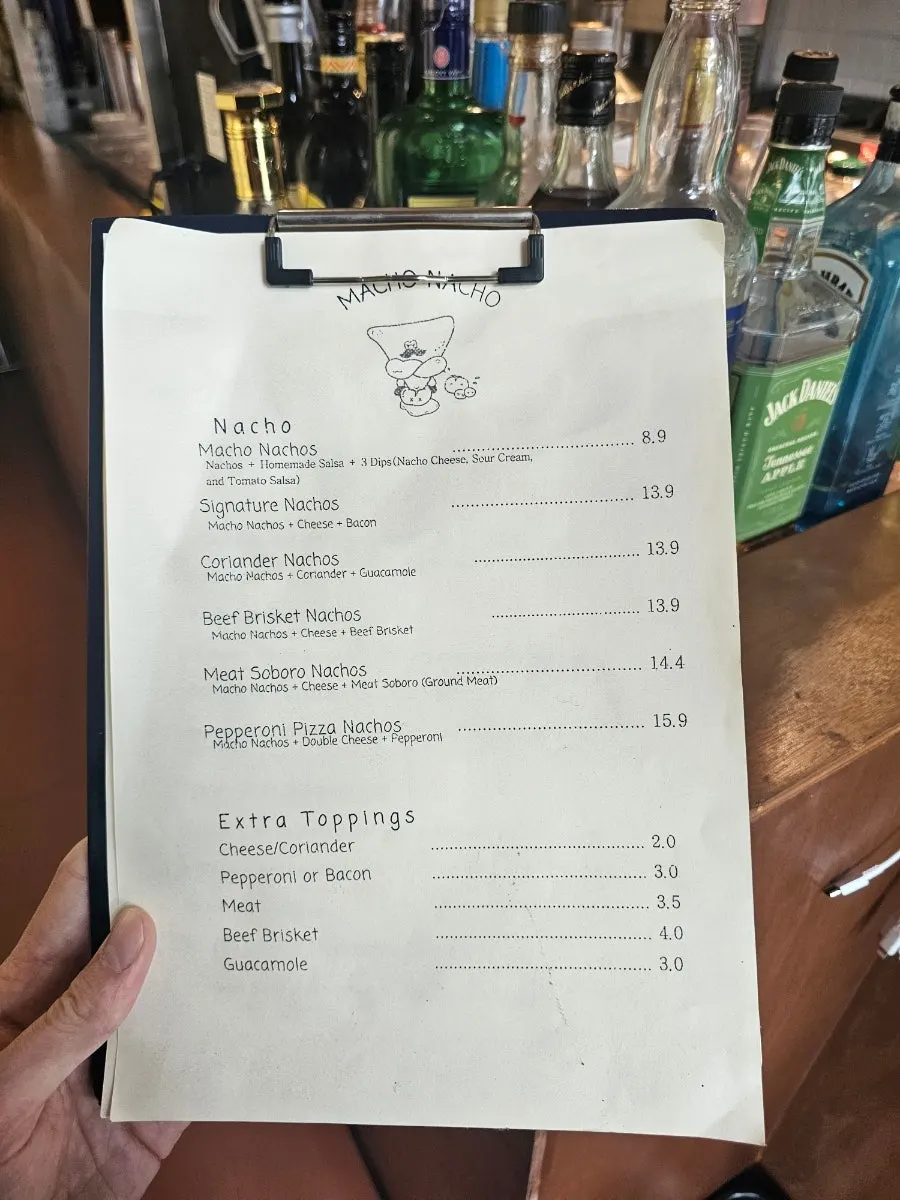 MACHO NACHO
Nacho
Macho Nachos ........................ 8.9
Nachos + Homemade Salsa + 3 Dips(Nacho Cheese, Sour Cream,
and Tomato Salsa)
Signature Nachos ........................ 13.9
Macho Nachos + Cheese + Bacon
Coriander Nachos ........................ 13.9
Macho Nachos + Coriander + Guacamole
Beef Brisket Nachos ........................ 13.9
Macho Nachos + Cheese + Beef Brisket
Meat Soboro Nachos ........................ 14.4
Macho Nachos + Cheese + Meat Soboro (Ground Meat)
Pepperoni Pizza Nachos ........................ 15.9
Macho Nachos + Double Cheese + Pepperoni
Extra Toppings
Cheese/Coriander ........................ 2.0
Pepperoni or Bacon ........................ 3.0
Meat ........................ 3.5
Beef Brisket ........................ 4.0
Guacamole ........................ 3.0
JACK DANIEL'S
Tennessee
APPLE